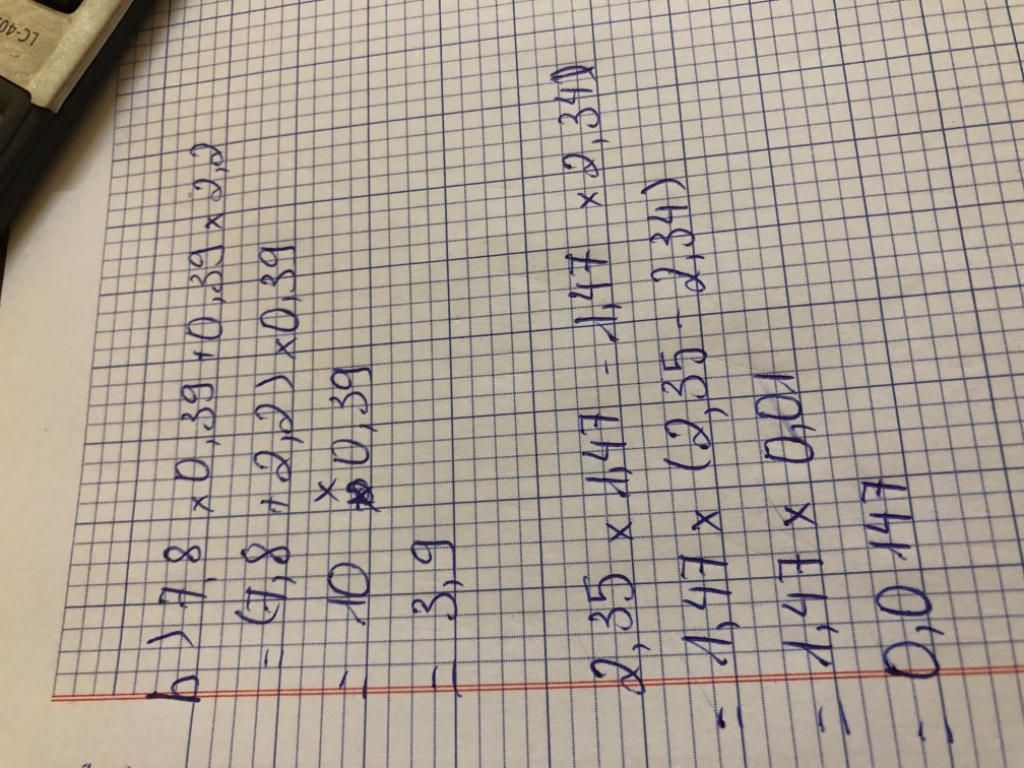 LC-40
b) 7,8 x 0,39 + 0,39 x 2,2
= (7,8 + 2,2) x 0,39
= 10 x 0,39
= 3,9
2,35 x 1,47 - 1,47 x 2,34
= 1,47 x (2,35 - 2,34)
= 1,47 x 0,01
= 0,0147